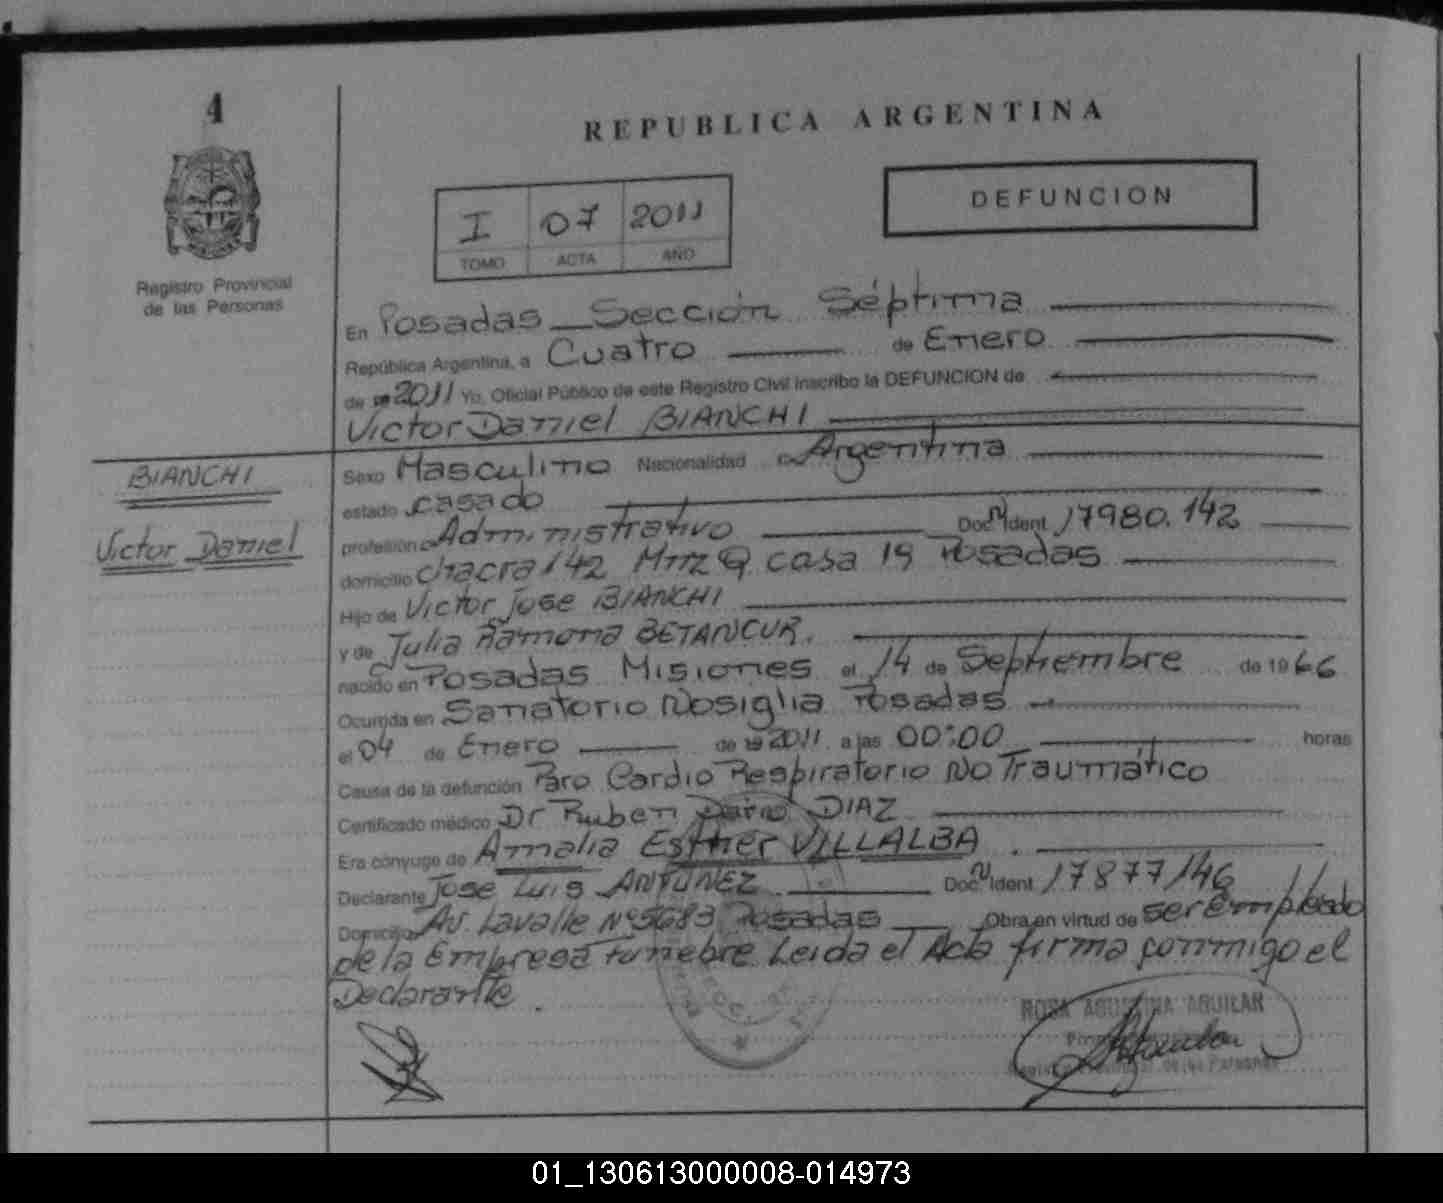 4
REPUBLICA ARGENTINA
I 07 2011
TOMO ACTA AÑO
DEFUNCION
Registro Provincial
de las Personas
En Posadas Sección Séptima
República Argentina, a Cuatro de Enero
de 19 2011 Yo, Oficial Público de este Registro Civil inscribo la DEFUNCION de
Victor Daniel BIANCHI
BIANCHI
Victor Daniel
Sexo Masculino Nacionalidad Argentina
estado casado
profesión Administrativo Doc. Ident. 17980.142
domicilio chacra 142 Mnz Q casa 19 Posadas
Hijo de Victor Jose BIANCHI
y de Julia Ramona BETANCUR.
nacido en Posadas Misiones el 14 de Septiembre de 1966
Ocurrida en Sanatorio Nosiglia Posadas
el 04 de Enero de 19 2011 a las 00:00 horas
Causa de la defunción Paro Cardio Respiratorio No Traumático
Certificado médico Dr Ruben Dario DIAZ
Era cónyuge de Amalia Esther VILLALBA
Declarante Jose Luis ANTUNEZ Doc. Ident 17877146
Domicilio Av. Lavalle Nº5683 Posadas Obra en virtud de ser Empleado
de la Empresa funebre Leida el Acta firma conmigo el
Declarante.
ROSA AGUSTINA AGUILAR
01_130613000008-014973